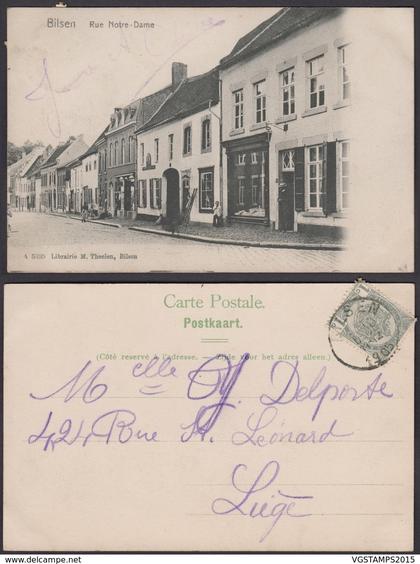 Bilsen Rue Notre-Dame
A 5335 Librairie M. Theelen, Bilsen
Carte Postale.
Postkaart.
(Côté reservé à l'adresse. - Zijde voor het adres alleen.)
BILSEN
1905
Melle Delporte
424 Rue St. Léonard
Liège
VGSTAMPS2015